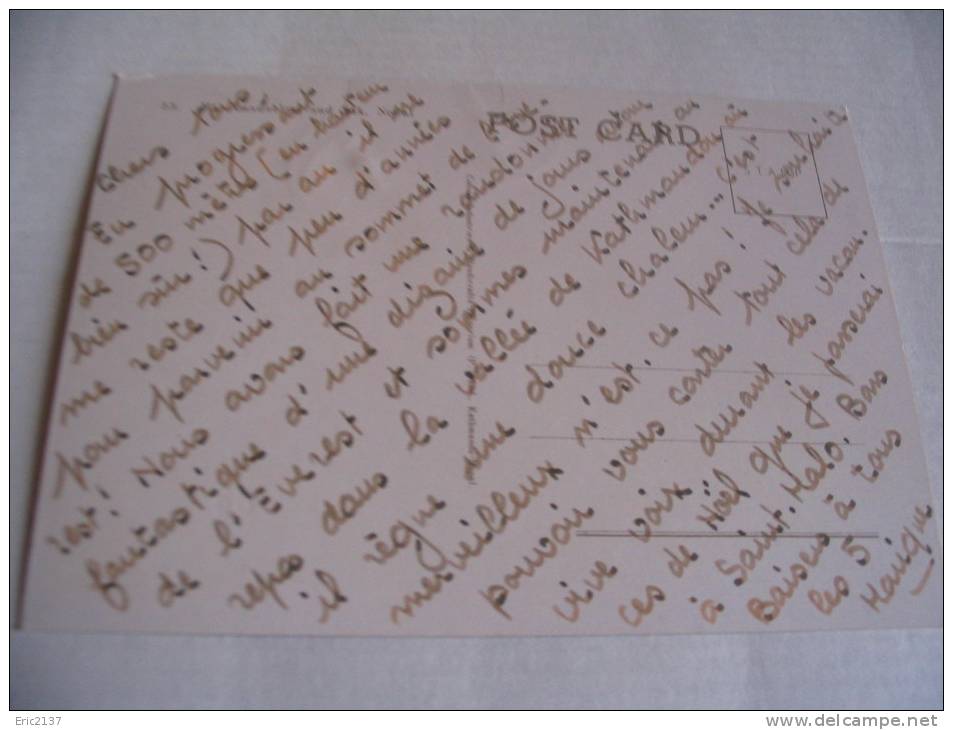 POST CARD
Chers tous
En progressant
de 500 mètres (en hauteur
bien sûr!) par an il
me reste que peu d'années
pour parvenir au sommet de
est! Nous avons fait une randonnée
fantastique d'une dizaine de jours
de l'Everest et sommes maintenant au
repos dans la vallée de Kathmandou où
il règne une douce chaleur... c'est
merveilleux n'est-ce pas! Je
pouvoir vous conter tout cela de
vive voix durant les vacan-
ces de Noël que je passerai
à Saint-Malo. Bons
Baisers à tous
les 5
Eric2137
www.delcampe.net